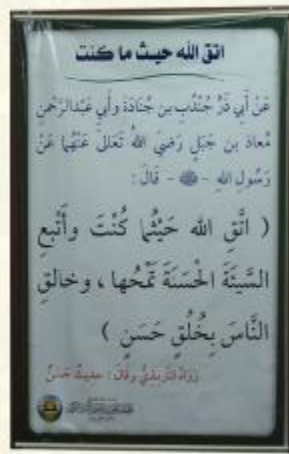 اتق الله حيث ما كنت
عَنْ أَبِي ذَرٍّ جُنْدُبِ بن جُنَادَةَ وأَبي عَبْدالرَّحمنِ
مُعاذ بن جَبَلٍ رَضيَ اللهُ تَعَالَى عَنْهُما عَنْ
رَسُولِ اللهِ - ﷺ - قَالَ :
( اتَّقِ الله حَيْثُما كُنْتَ وأَتْبعِ
السَّيِّئَةَ الْحَسَنَةَ تَمْحُها ، وخالقِ
النَّاسَ بِخُلُقٍ حَسَنٍ )
رَوَاهُ التِّرْمِذِيُّ وقَالَ : حديثٌ حَسَنٌ